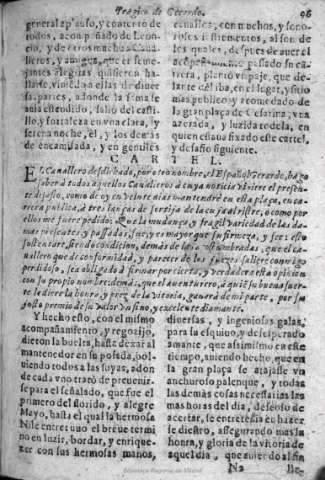 Tragico de Gerardo. 96
general aplauso, y concierto de
todos, acompañado de Leon-
cio, y de otros muchos Caua-
lleros, y amigos, que en seme-
jantes alegrias quisieron ha-
llarse, viniendo en ellas de diuer-
sas partes, adonde la fama te-
nia estendido, salio del casti-
llo, y fortaleza en vna clara, y
serena noche, èl, y los demàs
de encamisada, y en gentiles
cauallos, con muchos, y sono-
rosos instrumentos, al son de
los quales, despues de auer el
acompañamiento passado su ca-
rrera, plantò vn paje, que de-
lante del iba, en el lugar, y sitio
mas publico, y acomodado de
la gran plaça de Cesarina, vna
acerada, y luzida rodela, en
quien estaua fixado este cartel,
y desafio siguiente.
CARTEL.
EL Cauallero desdichado, por otro nombre, el Español Gerardo, hago
saber à todos aquellos Caualleros à cuya noticia viniere el presen-
te desafio, como de oy en veinte dias mantendrè en esta plaça, en ca-
rrera publica, à tres lanças de sortija de la cuja al ristre, o como por
ellos me fuere pedido: Que la mudança, y fragil variedad de las da-
mas presentes, y passadas, fue, y es mayor que su firmeza, y fee: esto
sustentarè, siendo condicion, demàs de las acostumbradas, que el ca-
uallero que de conformidad, y parecer de los juezes saliere conmigo
perdidoso, sea obligado à firmar por cierta, y verdadera esta opinion
con su propio nombre: demàs, que el auenturero, à quiẽ su buena suer-
te le diere la honra, y prez de la vitoria, ganarà de mi parte, por ju-
sto premio de su valor, vn fino, y excelente diamante.
Y hecho esto, con el mismo
acompañamiento, y regozijo,
dieron la buelta, hasta dexar al
mantenedor en su posada, bol-
uiendo todos à las suyas, adon
de cada vno tratò de preuenir-
se para el señalado, que fue el
primero del florido, y alegre
Mayo, hasta el qual la hermosa
Nise entretuuo el breue termi
no en luzir, bordar, y enrique-
zer con sus hermosas manos,
diuersas, y ingeniosas galas,
para su esquiuo, y desesperado
amante, que assimismo en este
tiempo, auiendo hecho, que en
la gran plaça se atajasse vn
anchuroso palenque, y todas
las demàs cosas necessarias las
mas horas del dia, deseoso de
acertar, se entretenia en hazer-
se diestro, assegurando mas la
honra, y gloria de la vitoria de
aquel dia, que auiendo al fin
Na lle-
Biblioteca Regional de Madrid